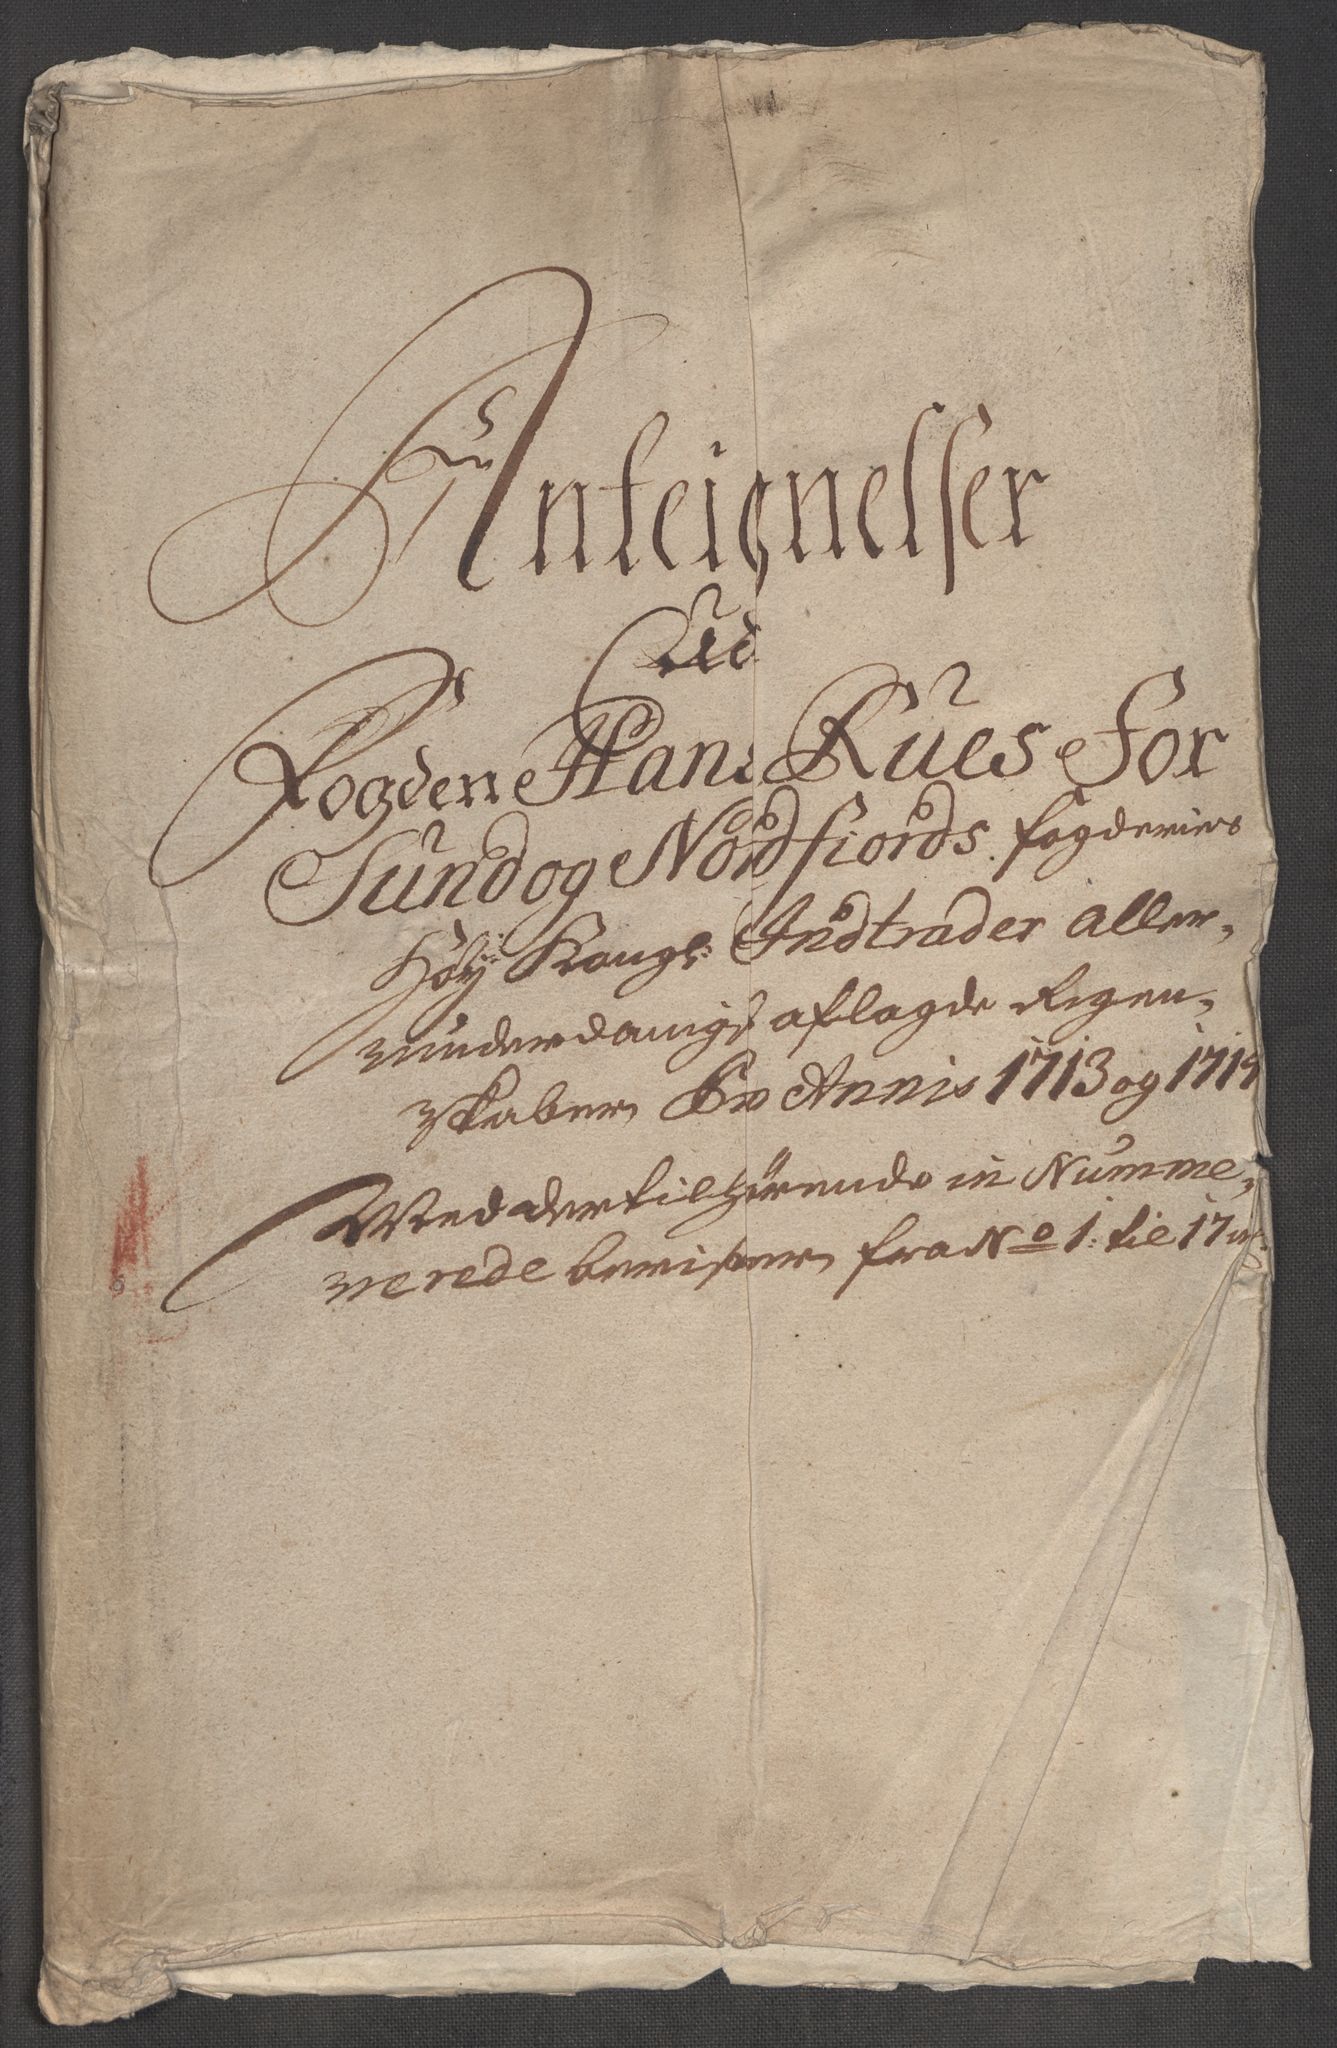 Anteignelsser
Ud
Fogden Hans Rues For
Sund og Nordfiords fogderiers
Høy Kongl: Indtrader aller-
underdanigst aflagde Regen-
skaber, Pro Annis 1713 og 1714
Med dertilhørende in Numme-
rerede beviser, fra No 1: til 17